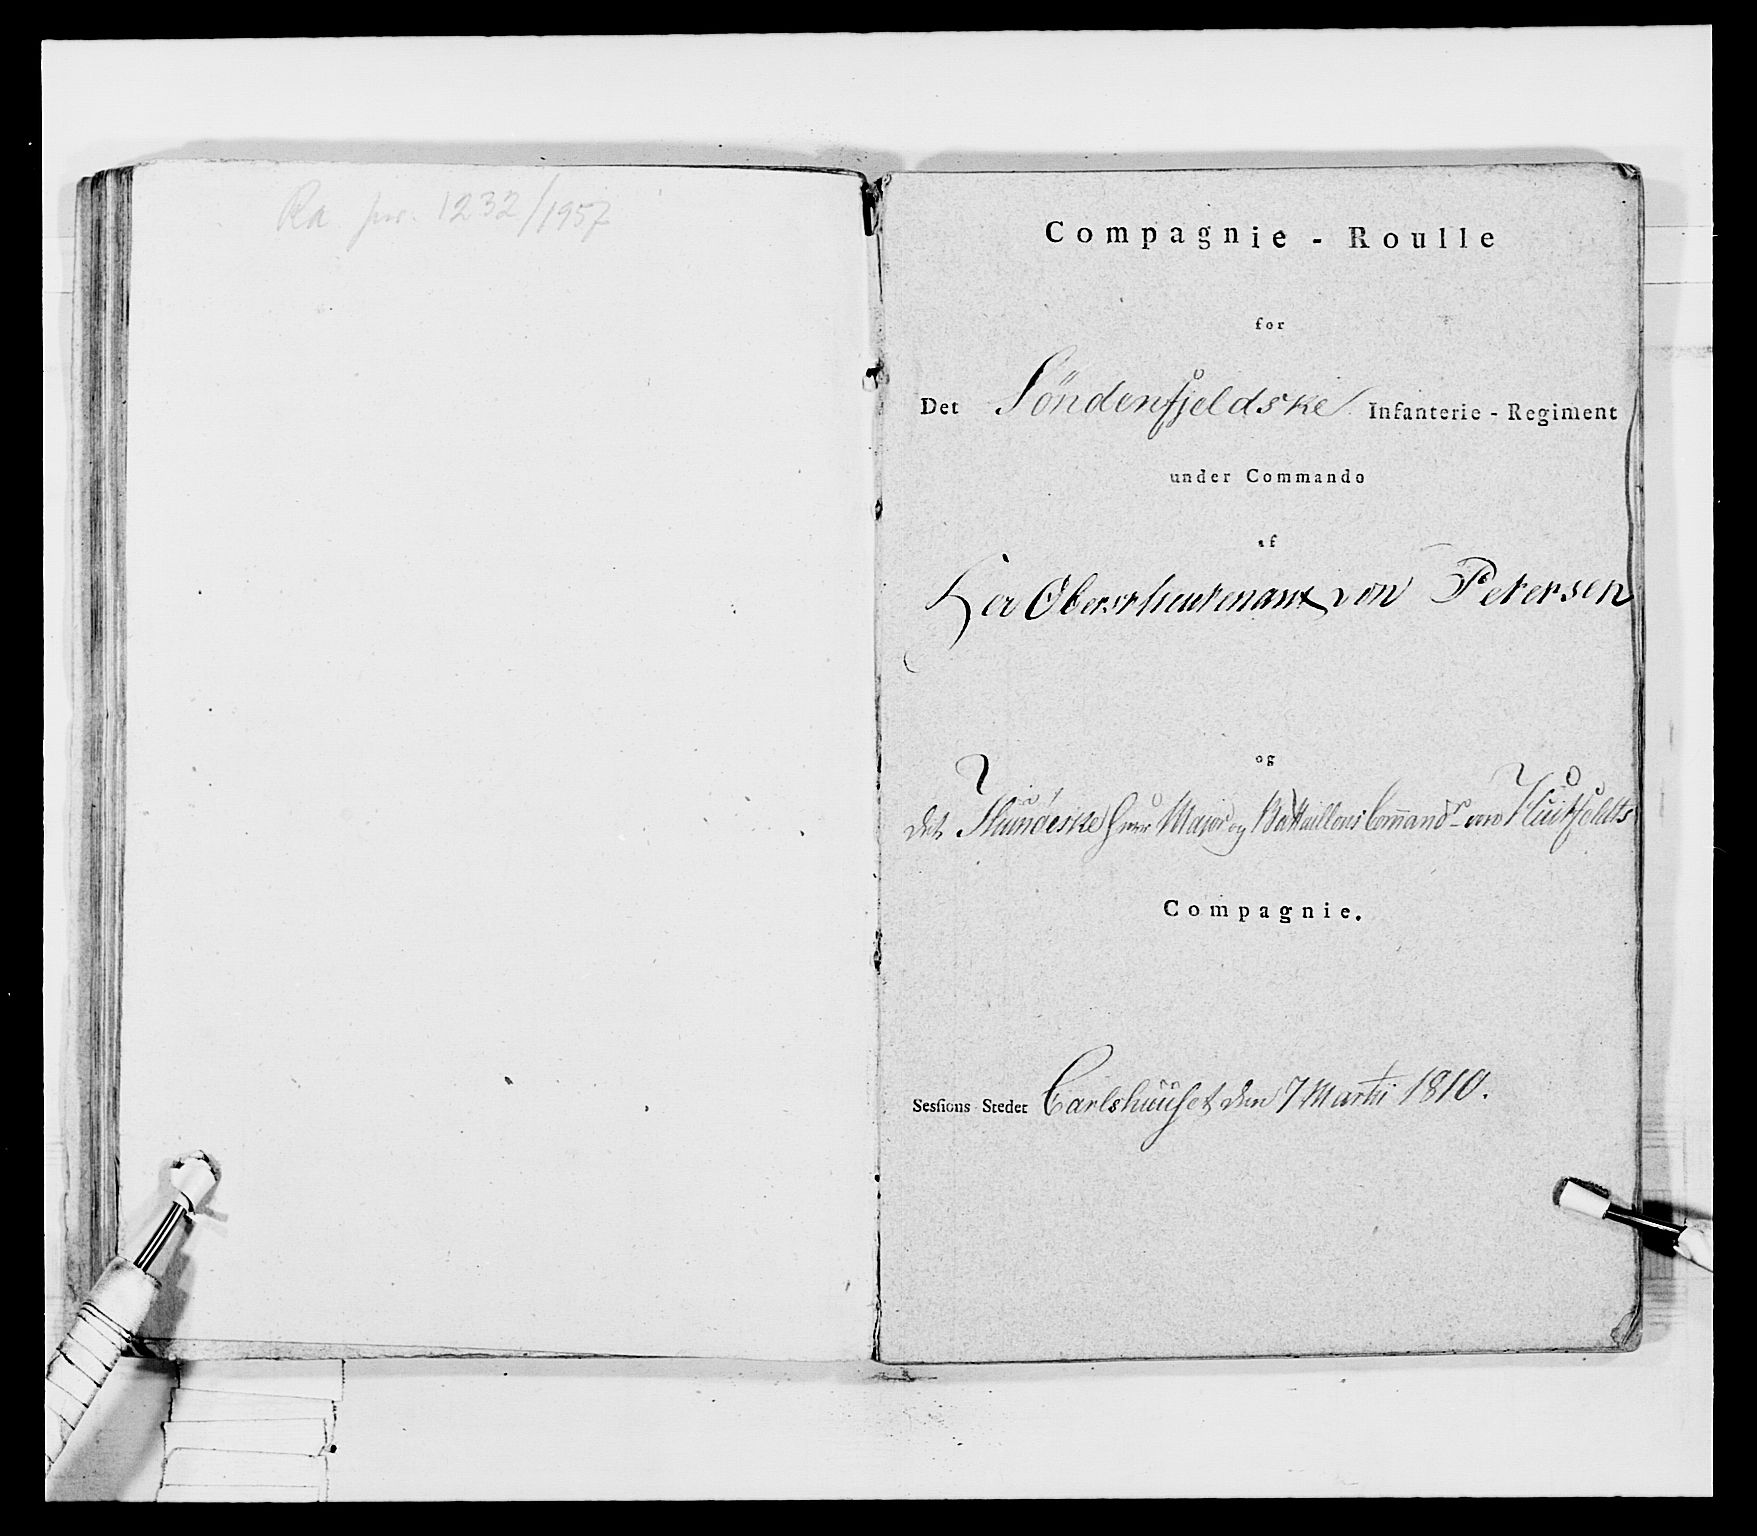 Ra jnr. 1232/1957
Compagnie - Roulle
for
Det Söndenfjeldske Infanterie - Regiment
under Commando
af
Her Oberstlieutenant von Petersen
og
det Hundeske Herr Major og Battaillons Com̄andr von Huitfeldts
Compagnie.
Sessions Stedet Carlshuuset den 7 Martii 1810.